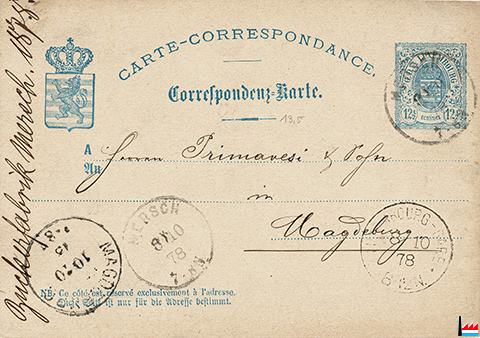 CARTE-CORRESPONDANCE.
Correspondenz-Karte.
12½ CENTIMES 12½
13,5
A
An
Herren Primavesi & Sohn
in
Magdeburg
Zuckerfabrik Mersch. 1878.
MERSCH
8 10
78
MAGD
8 10
78
NB: Ce côté est réservé exclusivement à l'adresse.
Diese Seite ist nur für die Adresse bestimmt.